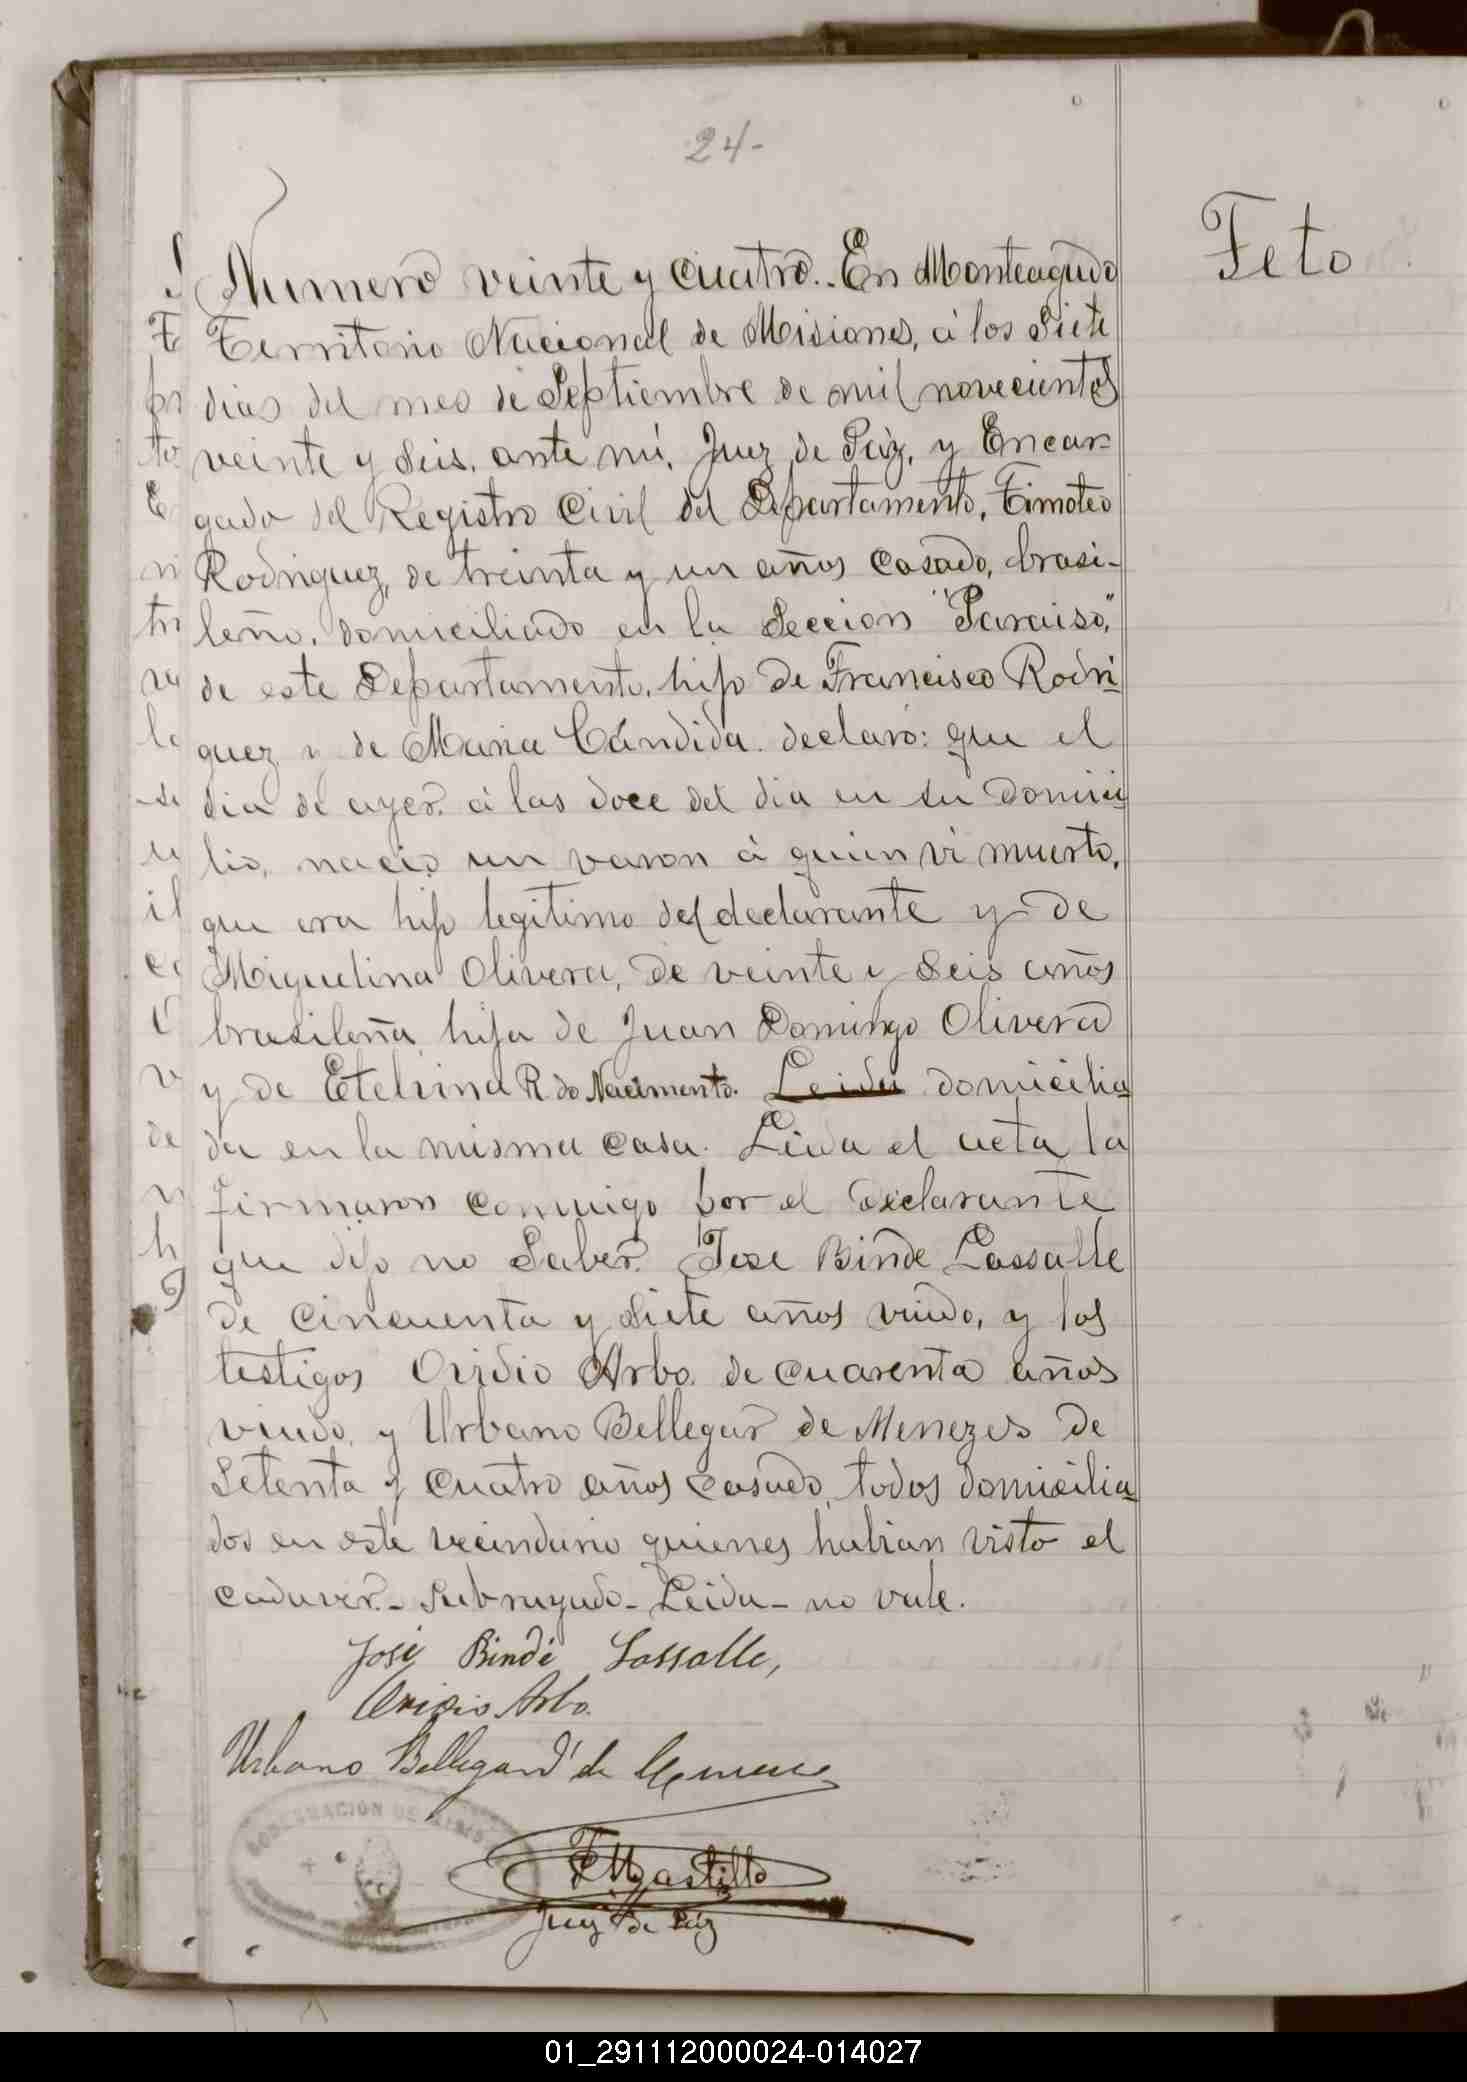 24-
Feto
Numero veinte y cuatro.- En Monteagudo
Territorio Nacional de Misiones, á los Siete
dias del mes de Septiembre de mil novecientos
veinte y Seis, ante mi, Juez de Páz, y Encar-
gado del Registro Civil del Departamento, Timoteo
Rodriguez, de treinta y un años casado, brasi-
leño, domiciliado en la Seccion "Paraiso",
de este Departamento, hijo de Francisco Rodri-
guez y de Maria Cándida. declaró: que el
dia de ayer á las doce del dia en su domici-
lio, nació un varon á quien vi muerto,
que era hijo legitimo del declarante y de
Miguelina Olivera, de veinte y Seis años
brasileña, hija de Juan Domingo Olivera
y de Etelvina R do Nacimento. Leida domicilia-
da en la misma casa. Leida el acta la
firmaron conmigo por el declarante
que dijo no Saber. Jose Binde Lassalle
de cincuenta y Siete años viudo, y los
testigos Ovidio Arbo. de cuarenta años
viudo, y Urbano Bellegar de Menezes de
Setenta y cuatro años casado, todos domicilia-
dos en este vecindario quienes habian visto el
cadaver.- Subrayado- Leida- no vale.
José Bindé Lassalle,
Ovidio Arbo.
Urbano Bellegard de Menezes
GOBERNACION DE
Juez de Páz
01_291112000024-014027